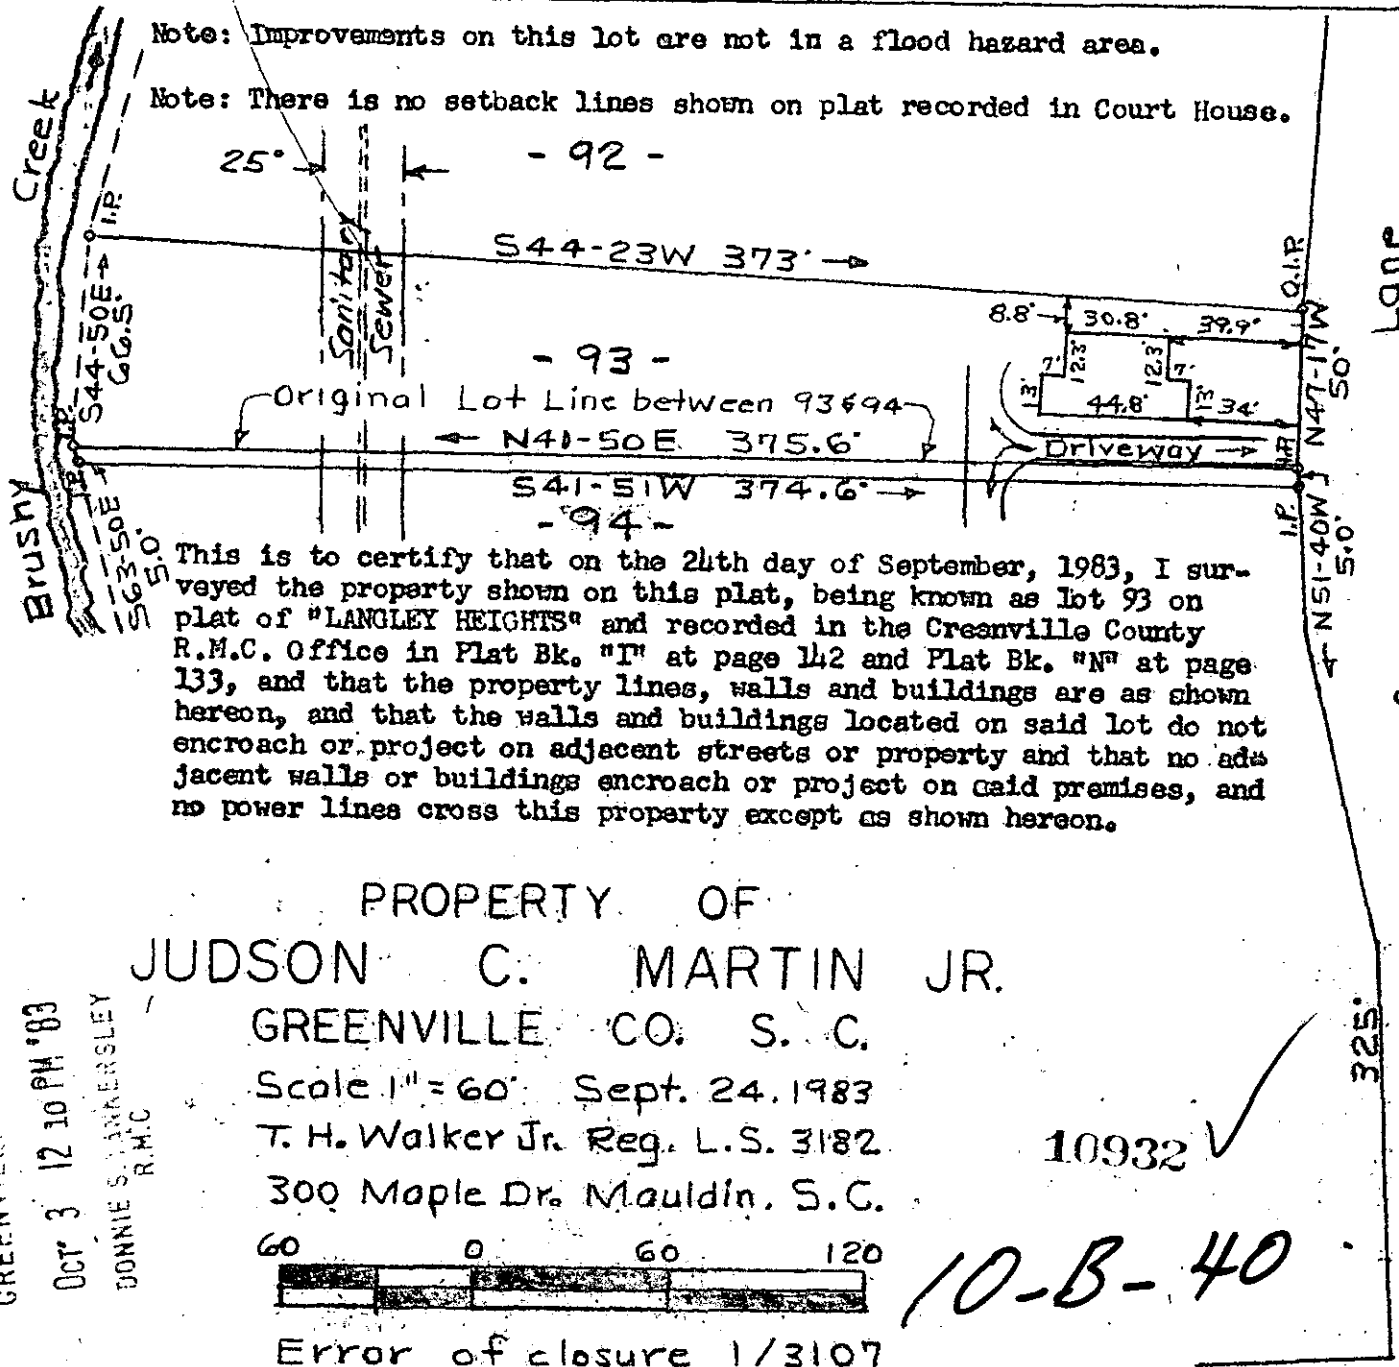 Note: Improvements on this lot are not in a flood hazard area.
Note: There is no setback lines shown on plat recorded in Court House.
Brushy Creek
25'
- 92 -
I.P.
S44-23W 373'
O.I.P.
Lane
S44-50E
66.5'
Sanitary
Sewer
8.8'
30.8'
39.9'
N47-17W
50'
- 93 -
7'
12.3'
12.3'
7'
13'
44.8'
13'
34'
Original Lot Line between 93&94
I.P.
N41-50E 375.6'
Driveway
I.P.
I.P.
S41-51W 374.6'
I.P.
- 94 -
S63-50E
5.0'
N51-40W
5.0'
This is to certify that on the 24th day of September, 1983, I sur-
veyed the property shown on this plat, being known as lot 93 on
plat of "LANGLEY HEIGHTS" and recorded in the Greenville County
R.M.C. Office in Plat Bk. "I" at page 142 and Plat Bk. "N" at page
133, and that the property lines, walls and buildings are as shown
hereon, and that the walls and buildings located on said lot do not
encroach or project on adjacent streets or property and that no ad-
jacent walls or buildings encroach or project on said premises, and
no power lines cross this property except as shown hereon.
PROPERTY OF
JUDSON C. MARTIN JR.
GREENVILLE CO. S. C.
Scale 1" = 60' Sept. 24, 1983
T. H. Walker Jr. Reg. L.S. 3182
300 Maple Dr. Mauldin, S.C.
60 0 60 120
Error of closure 1/3107
OCT 3 12 10 PM '83
DONNIE S. TANKERSLEY
R.M.C
325'
10932
10-B-40